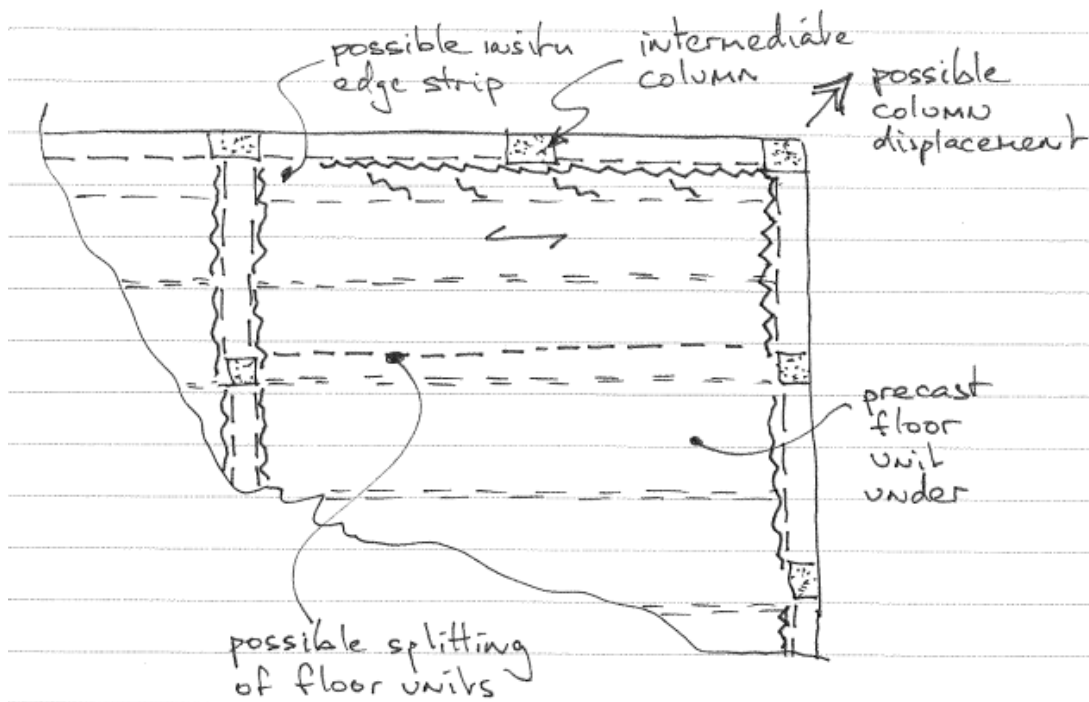 possible insitu
edge strip
intermediate
column
possible
column
displacement
precast
floor
unit
under
possible splitting
of floor units